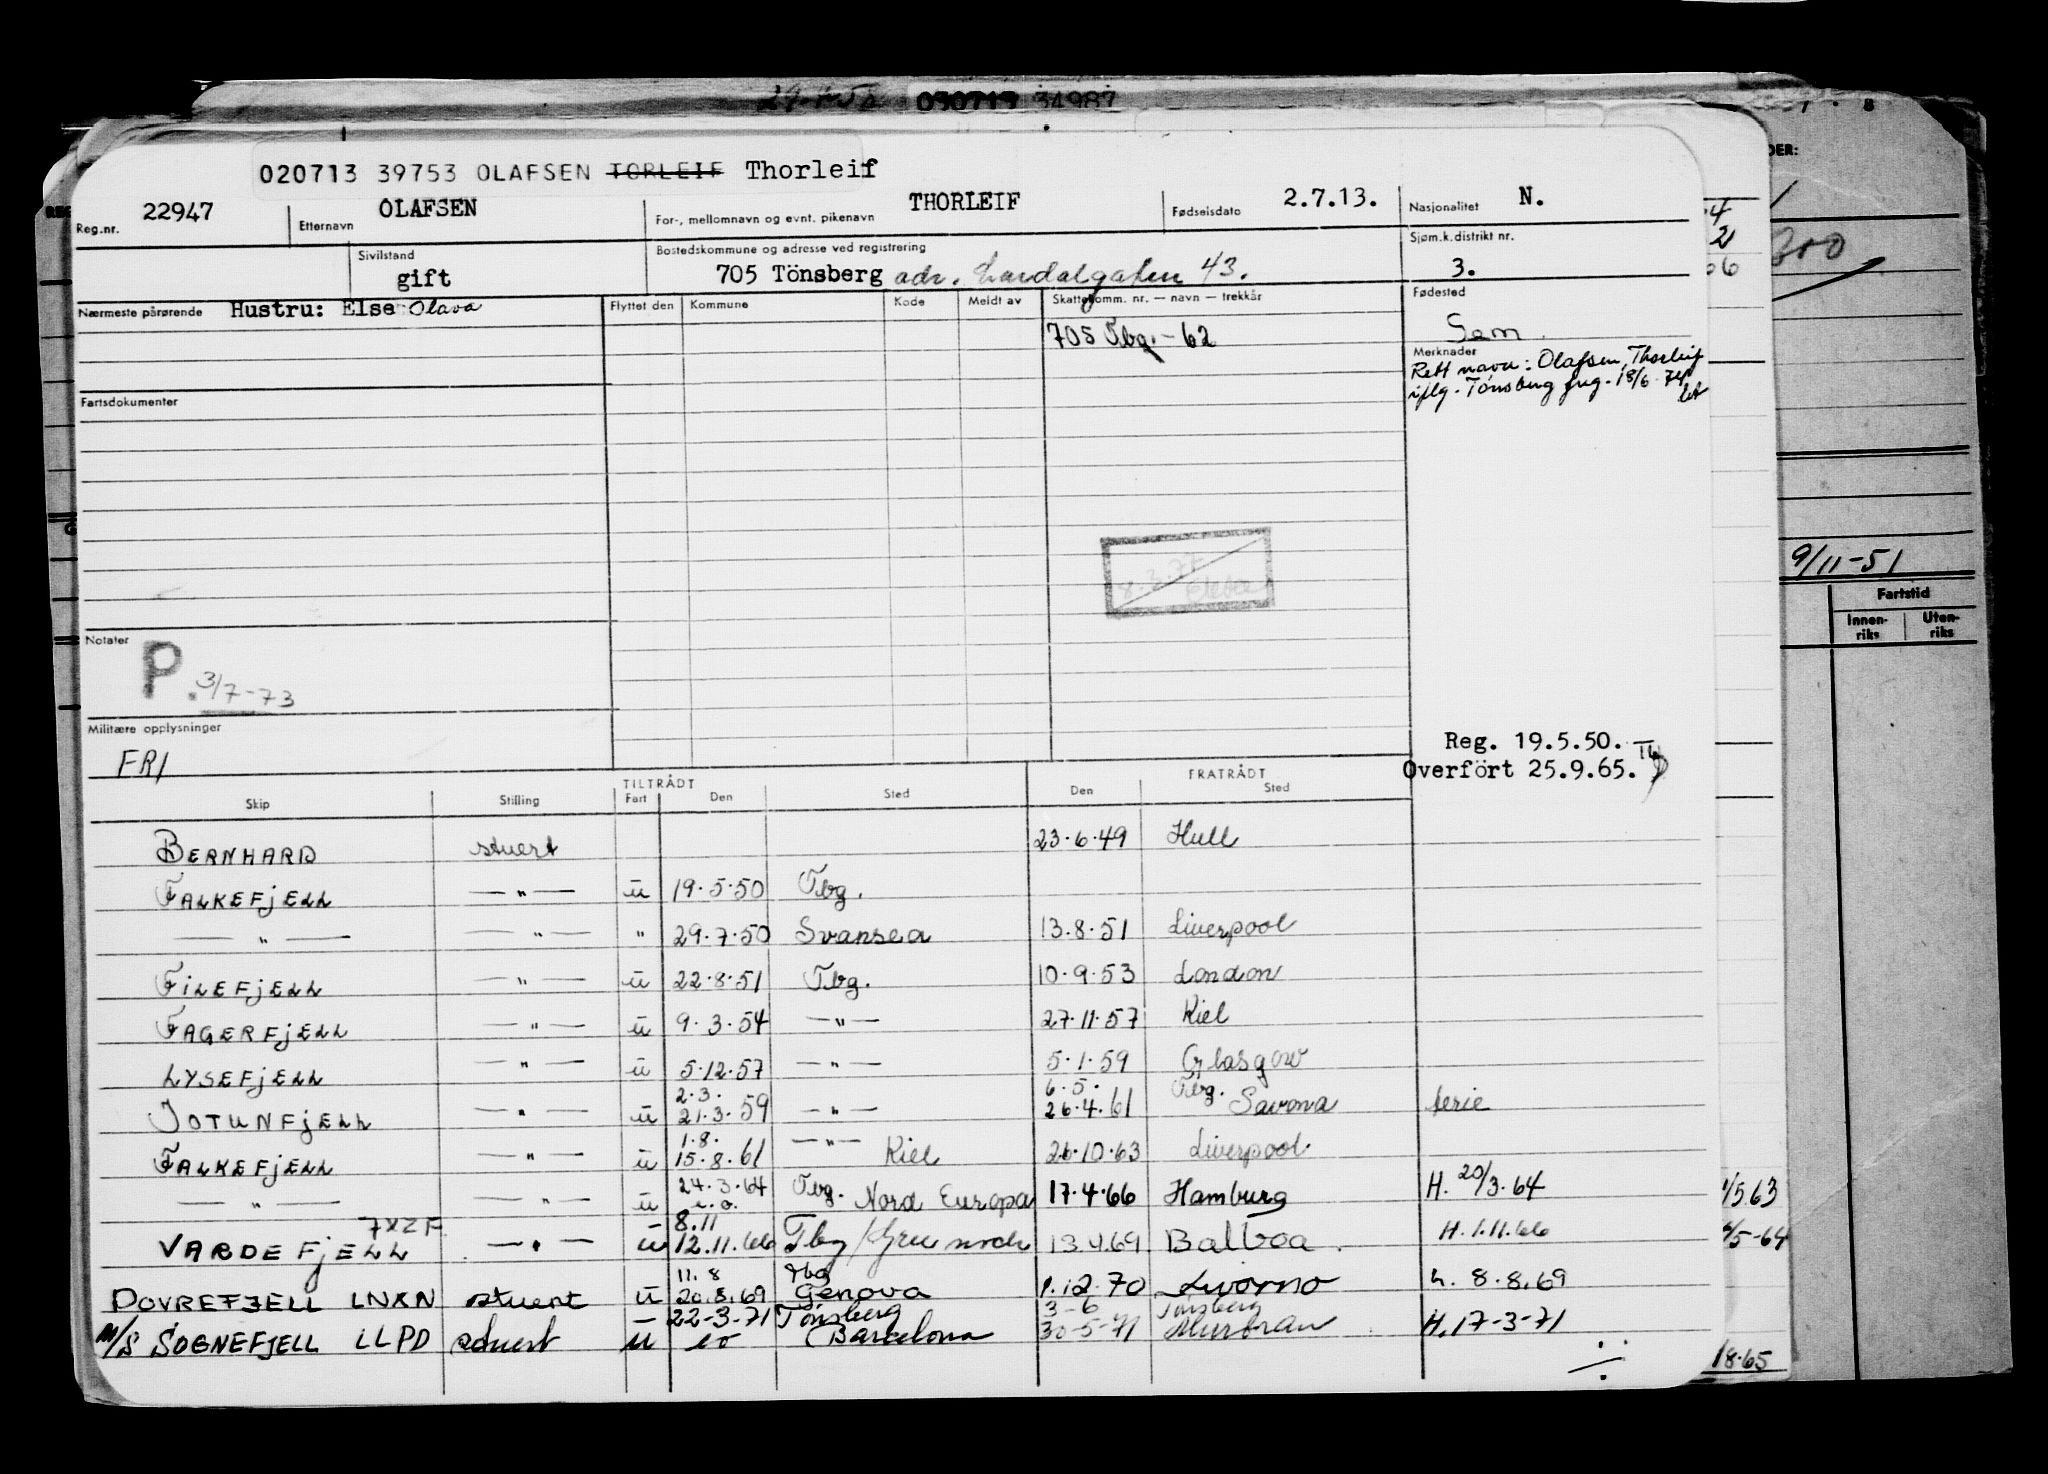 29-1-58 030713 34987
020713 39753 OLAFSEN TORLEIF Thorleif
Reg.nr. 22947 Etternavn OLAFSEN For-, mellomnavn og evnt. pikenavn THORLEIF Fødselsdato 2.7.13. Nasjonalitet N.
Sivilstand gift Bostedskommune og adresse ved registrering 705 Tönsberg adr. Lardalgaten 43. Sjøm.k.distrikt nr. 3.
Nærmeste pårørende Hustru: Else Olava Flyttet den Kommune Kode Meldt av Skattekomm. nr. — navn — trekkår Fødested
705 Tbg. - 62 Sem.
Merknader
Rett navn: Olafsen, Thorleif
iflg. Tönsberg frg. 18/6-74
Fartsdokumenter
8.3.77
Notater
P. 3/7-73
Militære opplysninger
FRI
Reg. 19.5.50.
Overfört 25.9.65.
TILTRÅDT FRATRÅDT
Skip Stilling Fart Den Sted Den Sted
BERNHARD stuert 23.6.49 Hull
FALKEFJELL —"— u 19.5.50 Tbg.
—"— —"— " 29.7.50 Svansea 13.8.51 Liverpool
FILEFJELL —"— u 22.8.51 Tbg. 10.9.53 London
FAGERFJELL —"— u 9.3.54 —"— 27.11.57 Kiel
LYSEFJELL —"— u 5.12.57 —"— 5.1.59 Glasgow
2.3. 6.5. Tbg.
JOTUNFJELL —"— u 21.3.59 —"— 26.4.61 Savona ferie
1.8. —"—
FALKEFJELL —"— u 15.8.61 Kiel 26.10.63 Liverpool
24.3.64 Tbg.
—"— —"— u e.o. Nord Europa 17.4.66 Hamburg H. 20/3.64
8.11
VARDEFJELL —"— u 12.11.66 Tbg/Greenock 13.4.69 Balboa H. 1.11.66
11.8 Tbg
DOVREFJELL LNXN stuert u 20.8.69 Genova 1.12.70 Livorno h. 8.8.69
22-3-71 Tönsberg 3-6 Tönsberg
M/S SOGNEFJELL LLPD stuert u eo (Barcelona 30-5-71 H. 17-3-71
9/11-51
Fartstid
Innen-
riks
Uten-
riks